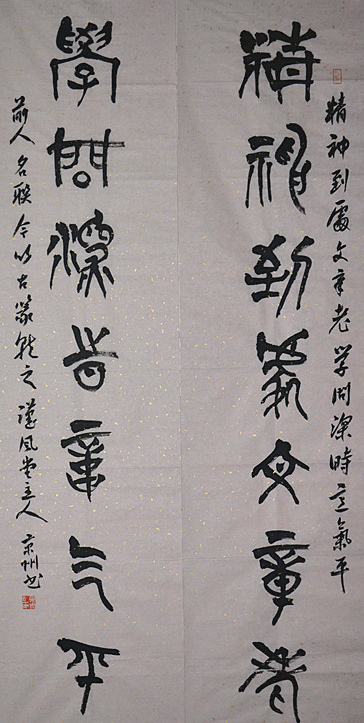 精神到處文章老學問深時意氣平
精神到處文章老
學問深時意气平
前人名联今以古篆 之 風堂主人京州书